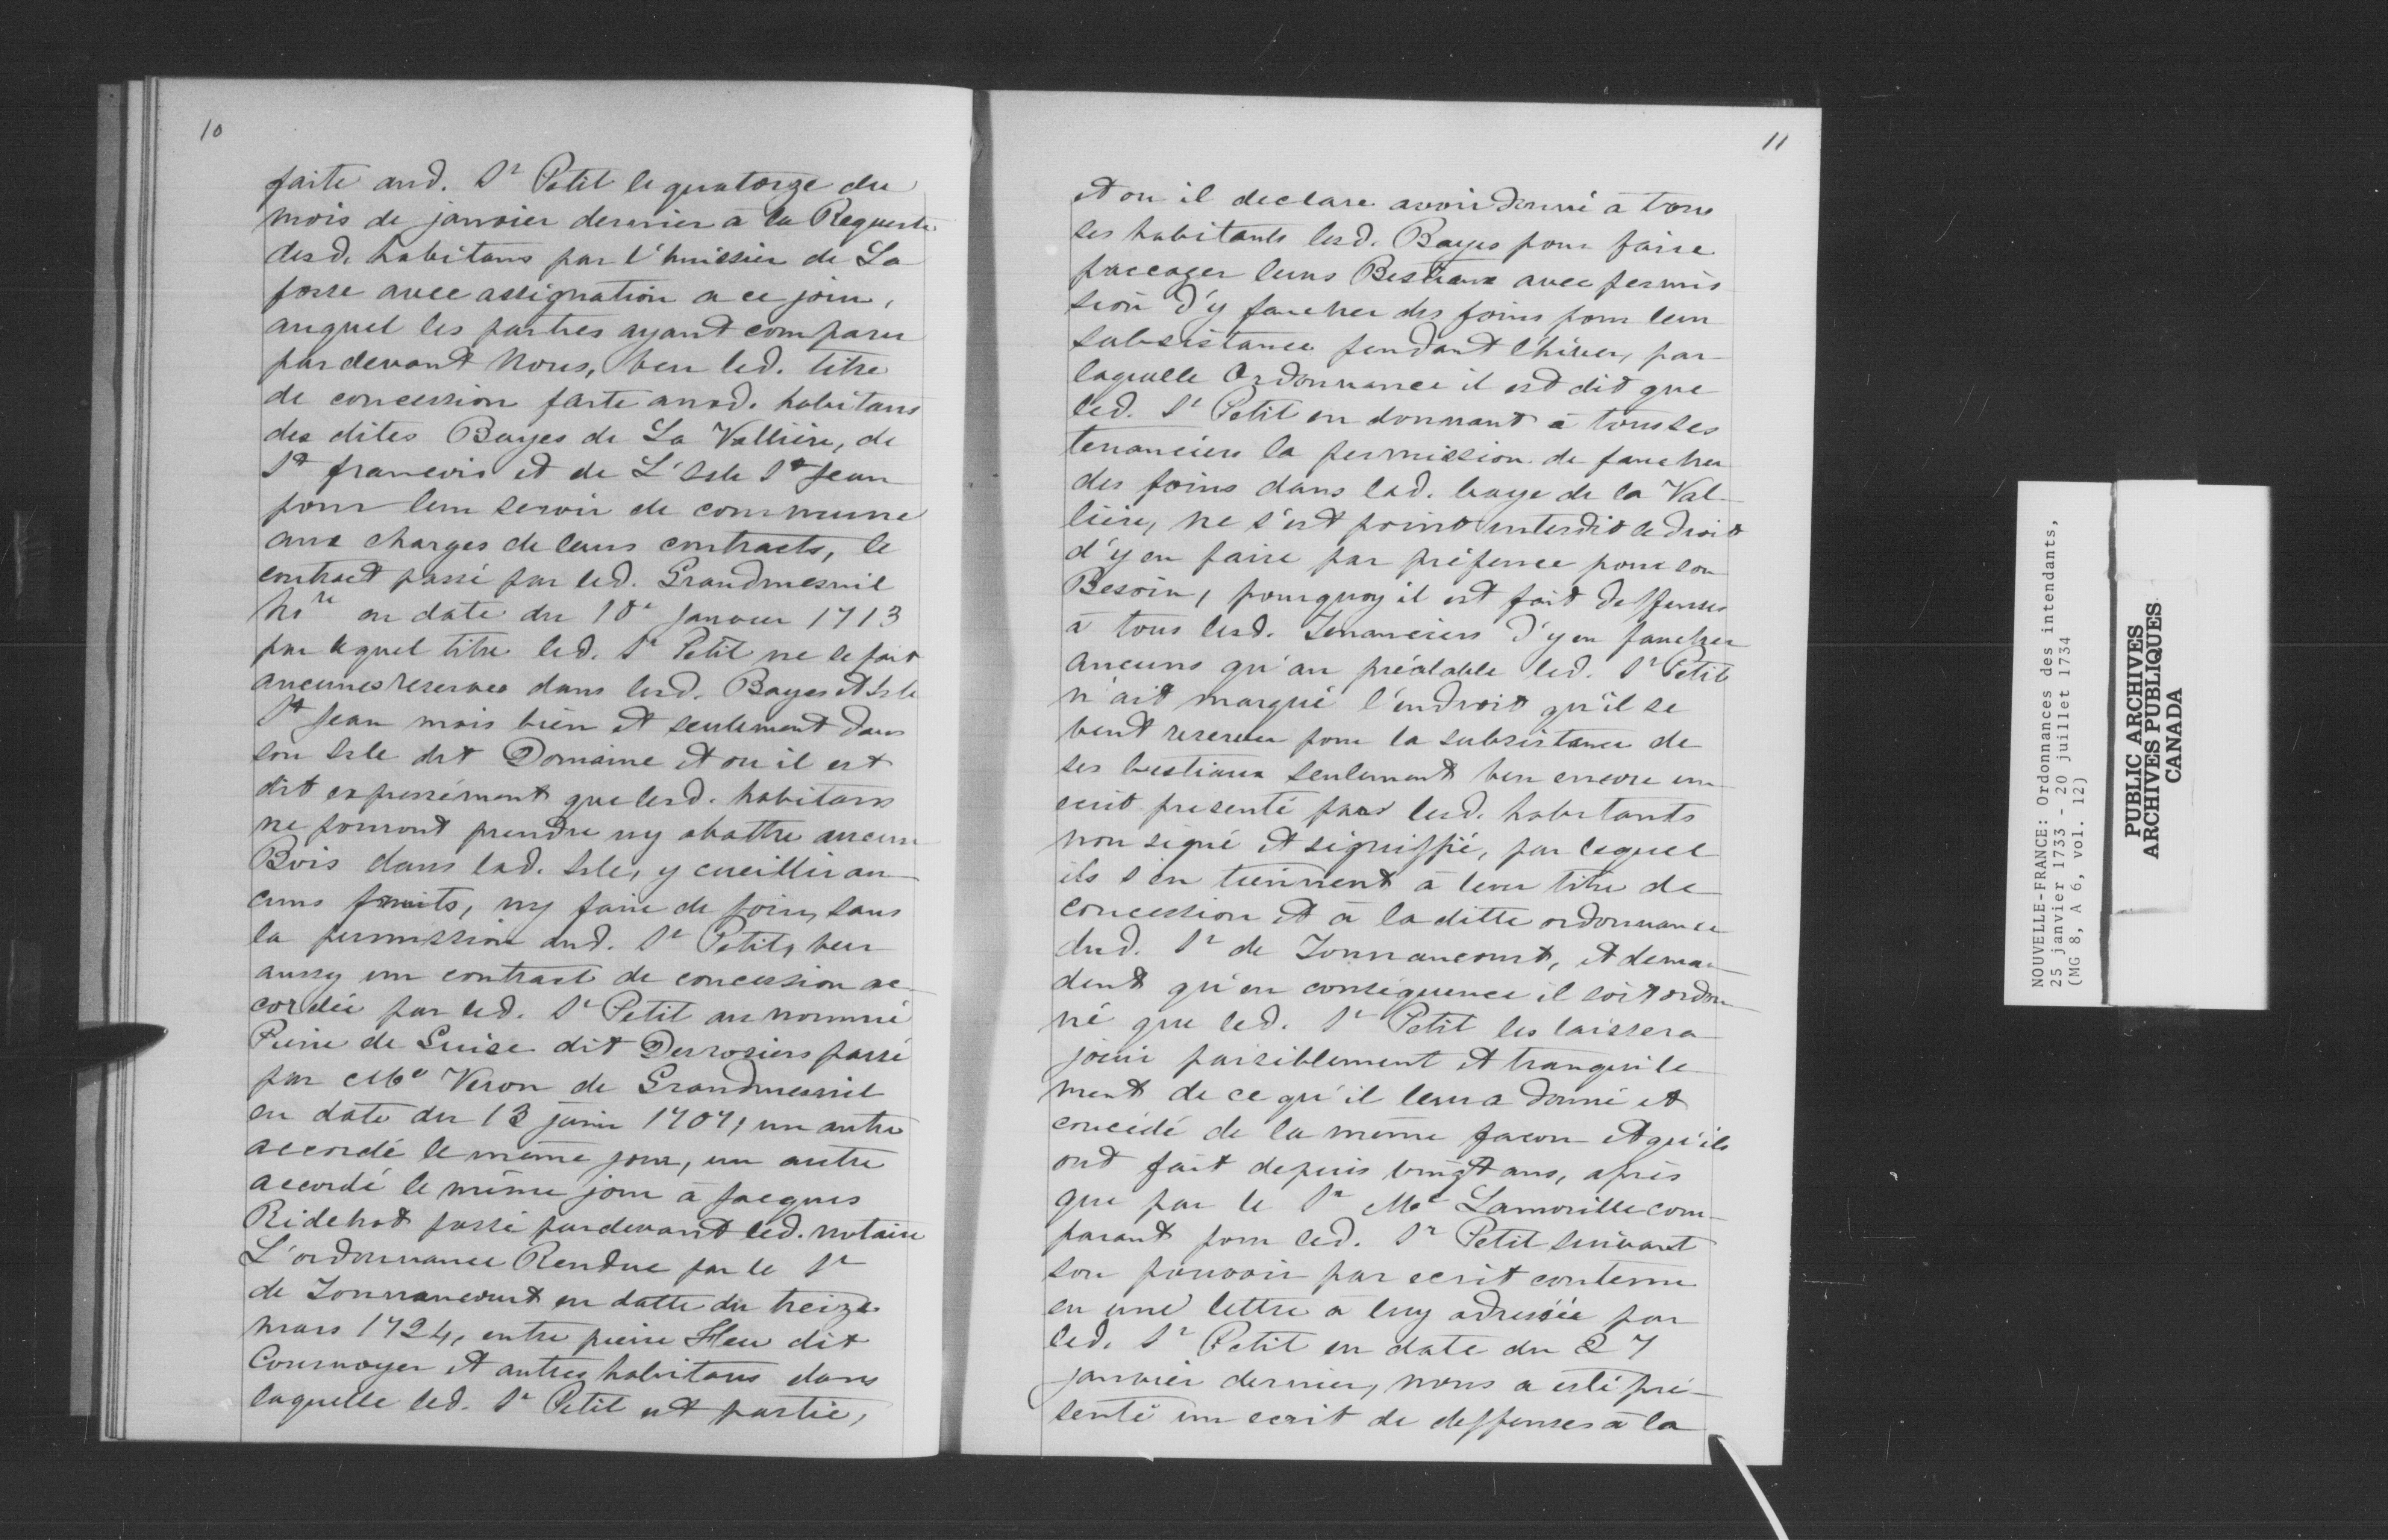 10
faite aud. Sr Petit le quatorze du
mois de janvier dernier a la Requeste
desd. habitans par l'huissier de La
fosse avec assignation a ce jour,
auquel les parties ayant comparu
pardevant Nous, veu led. titre
de concession faite auxd. habitans
des dites Bayes de La Vallière, de
St francois et de L'Isle St Jean
pour leur servir de commune
aux charges de leurs contracts, le
contract passé par led. Grandmesnil
Nre en date du 10e Janvier 1713
par lequel titre led. Sr Petit ne se fait
aucunes reserves dans lesd. Bayes et Isle
St Jean mais bien et seulement dans
son Isle dit Domaine et ou il est
dit expressément que lesd. habitans
ne pouront prendre ny abattre aucun
Bois dans lad. Isle, y cueillir au-
cuns fruits, ny faire de foin, sans
la permission dud. Sr Petit, veu
aussy un contract de concession ac-
cordée par led. Sr Petit au nommé
Pierre de Guise dit Desrosiers passé
par Me Veron de Grandmesnil
en date du 13 juin 1707, un autre
accordé le même jour, un autre
accordé le même jour à Jacques
Ridehot passé pardevant led. notaire
L'ordonnance Rendue par le Sr
de Tonnancourt en datte du treize
mars 1724, entre pierre Heu dit
Cournoyer et autres habitans dans
laquelle led. Sr Petit est partie,
11
et ou il declare avoir donné à tous
ses habitants lesd. Bayes pour faire
paccager leurs Bestiaux avec permis
sion d'y faucher des foins pour leur
subsistance pendant l'hiver, par
laquelle Ordonnance il est dit que
led. Sr Petit en donnant à tous ses
tenanciers la permission de faucher
des foins dans lad. baye de la Val-
lière, ne s'est point interdit le droit
d'y en faire par préference pour son
Besoin, pourquoy il est fait deffenses
à tous lesd. Tenanciers d'y en faucher
aucuns qu'au préalable led. Sr Petit
n'ait marqué l'endroit qu'il se
veut reserver pour la subsistance de
ses bestiaux seulement veu encore un
ecrit presenté par lesd. habitants
non signé et signiffié, par lequel
ils s'en tiennent à leur titre de
concession et à la ditte ordonnance
dud. Sr de Tonnancourt, et deman-
dent qu'en consequence il soit ordon-
né que led. Sr Petit les laissera
jouir paisiblement et tranquile
ment de ce qu'il leur a donné et
concédé de la même facon et qu'ils
ont fait depuis vingt ans, après
que par le Sr Me Lamorille com-
parant pour led. Sr Petit suivant
son pouvoir par ecrit contenu
en une lettre a luy adressée par
led. Sr Petit en date du 27
janvier dernier, nous a esté pré-
senté un ecrit de deffenses à la
NOUVELLE-FRANCE: Ordonnances des intendants,
25 janvier 1733 - 20 juillet 1734
(MG 8, A 6, vol. 12)
PUBLIC ARCHIVES
ARCHIVES PUBLIQUES
CANADA